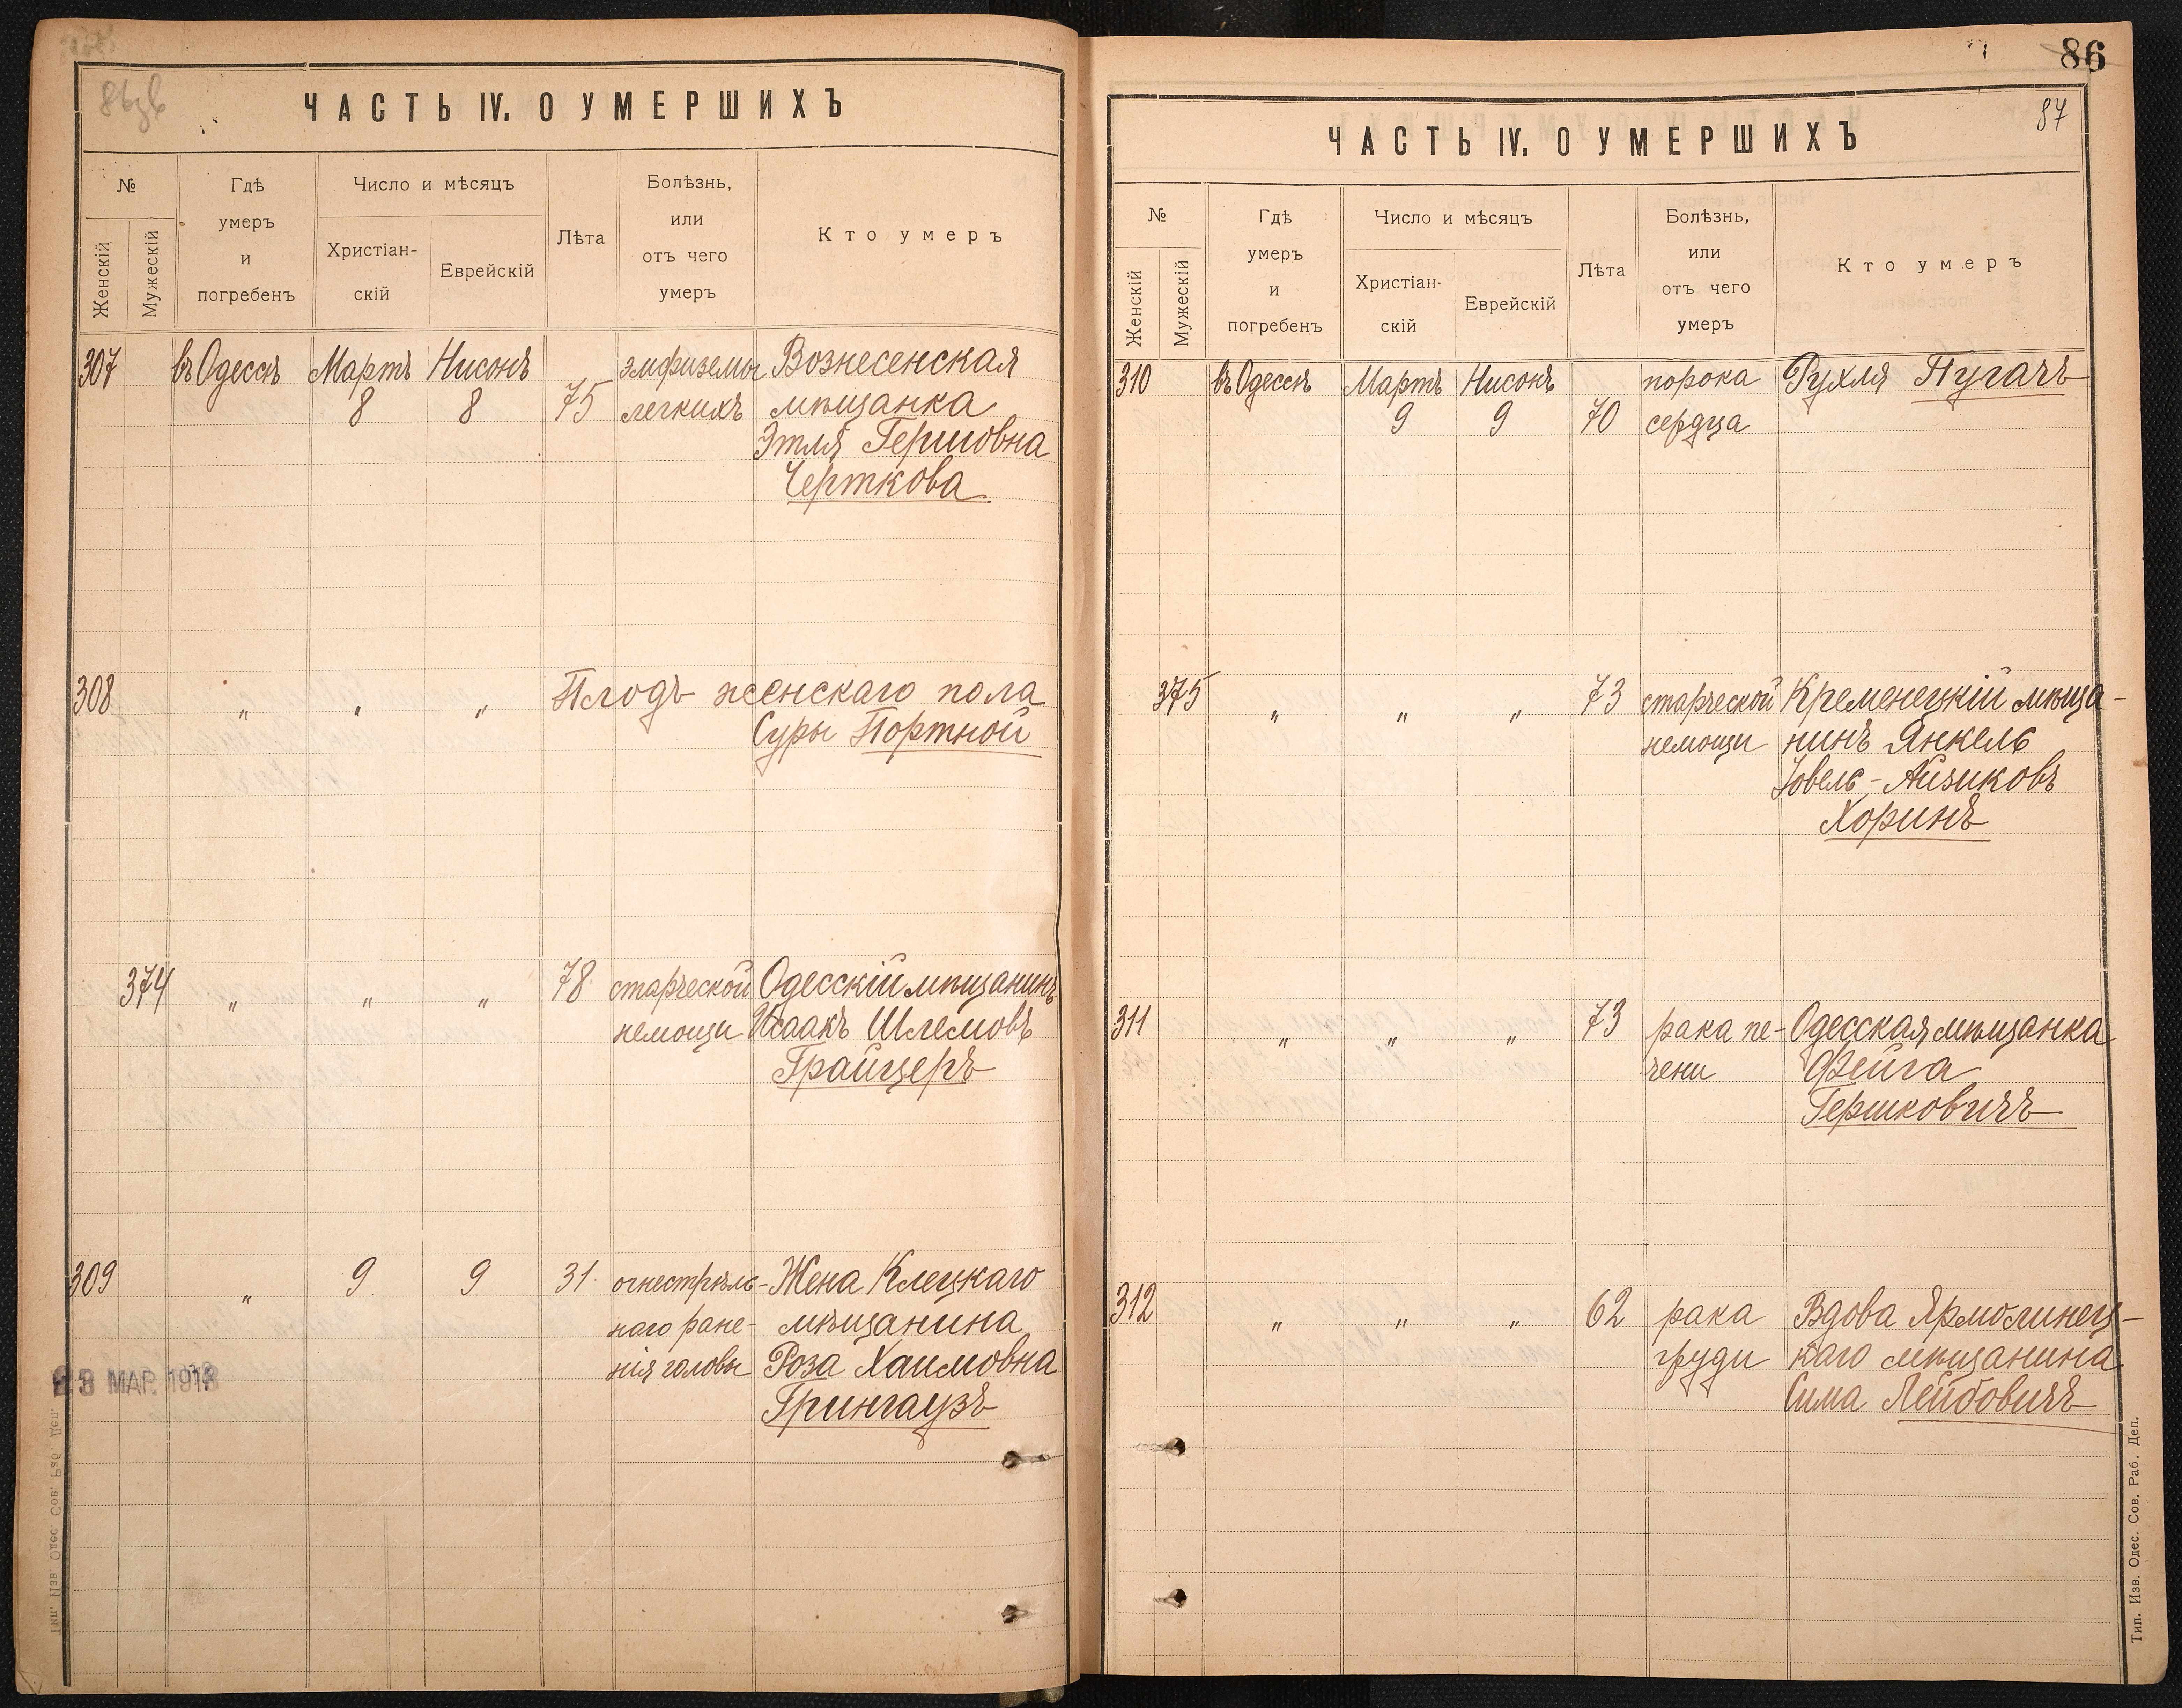 ЧАСТЬ IV. О УМЕРШИХЪ
№
Женскій
Мужескій
Гдѣ
умеръ
и
погребенъ
Число и мѣсяцъ
Христіан-
скій
Еврейскій
Лѣта
Болѣзнь,
или
отъ чего
умеръ
Кто умеръ
307 въ Одессѣ Мартъ Нисонъ эмфиземы Вознесенская
8 8 75 легкихъ мѣщанка
Этля Гершовна
Черткова
308 „ „ „ Плодъ женскаго пола
Суры Портной
374 „ „ „ 78 старческой Одесскій мѣщанинъ
немощи Исаакъ Шлемовъ
Грайцеръ
309 „ 9 9 31 огнестрѣль- Жена Клецкаго
наго ране- мѣщанина
нія головы Роза Хаимовна
Грингаузъ
МАР. 1918
86
87
ЧАСТЬ IV. О УМЕРШИХЪ
№
Женскій
Мужескій
Гдѣ
умеръ
и
погребенъ
Число и мѣсяцъ
Христіан-
скій
Еврейскій
Лѣта
Болѣзнь,
или
отъ чего
умеръ
Кто умеръ
310 въ Одессѣ Мартъ Нисонъ порока Рухля Пугачъ
9 9 70 сердца
375 „ „ „ 73 старческой Кременецкій мѣща-
немощи нинъ Янкель
Іовель-Айзиковъ
Хоринъ
311 „ „ „ 73 рака пе- Одесская мѣщанка
чени Фейга
Гершковичъ
312 „ „ „ 62 рака Вдова Ярмолинец-
груди каго мѣщанина
Сима Лейбовичъ
Тип. Изв. Одес. Сов. Раб. Деп.